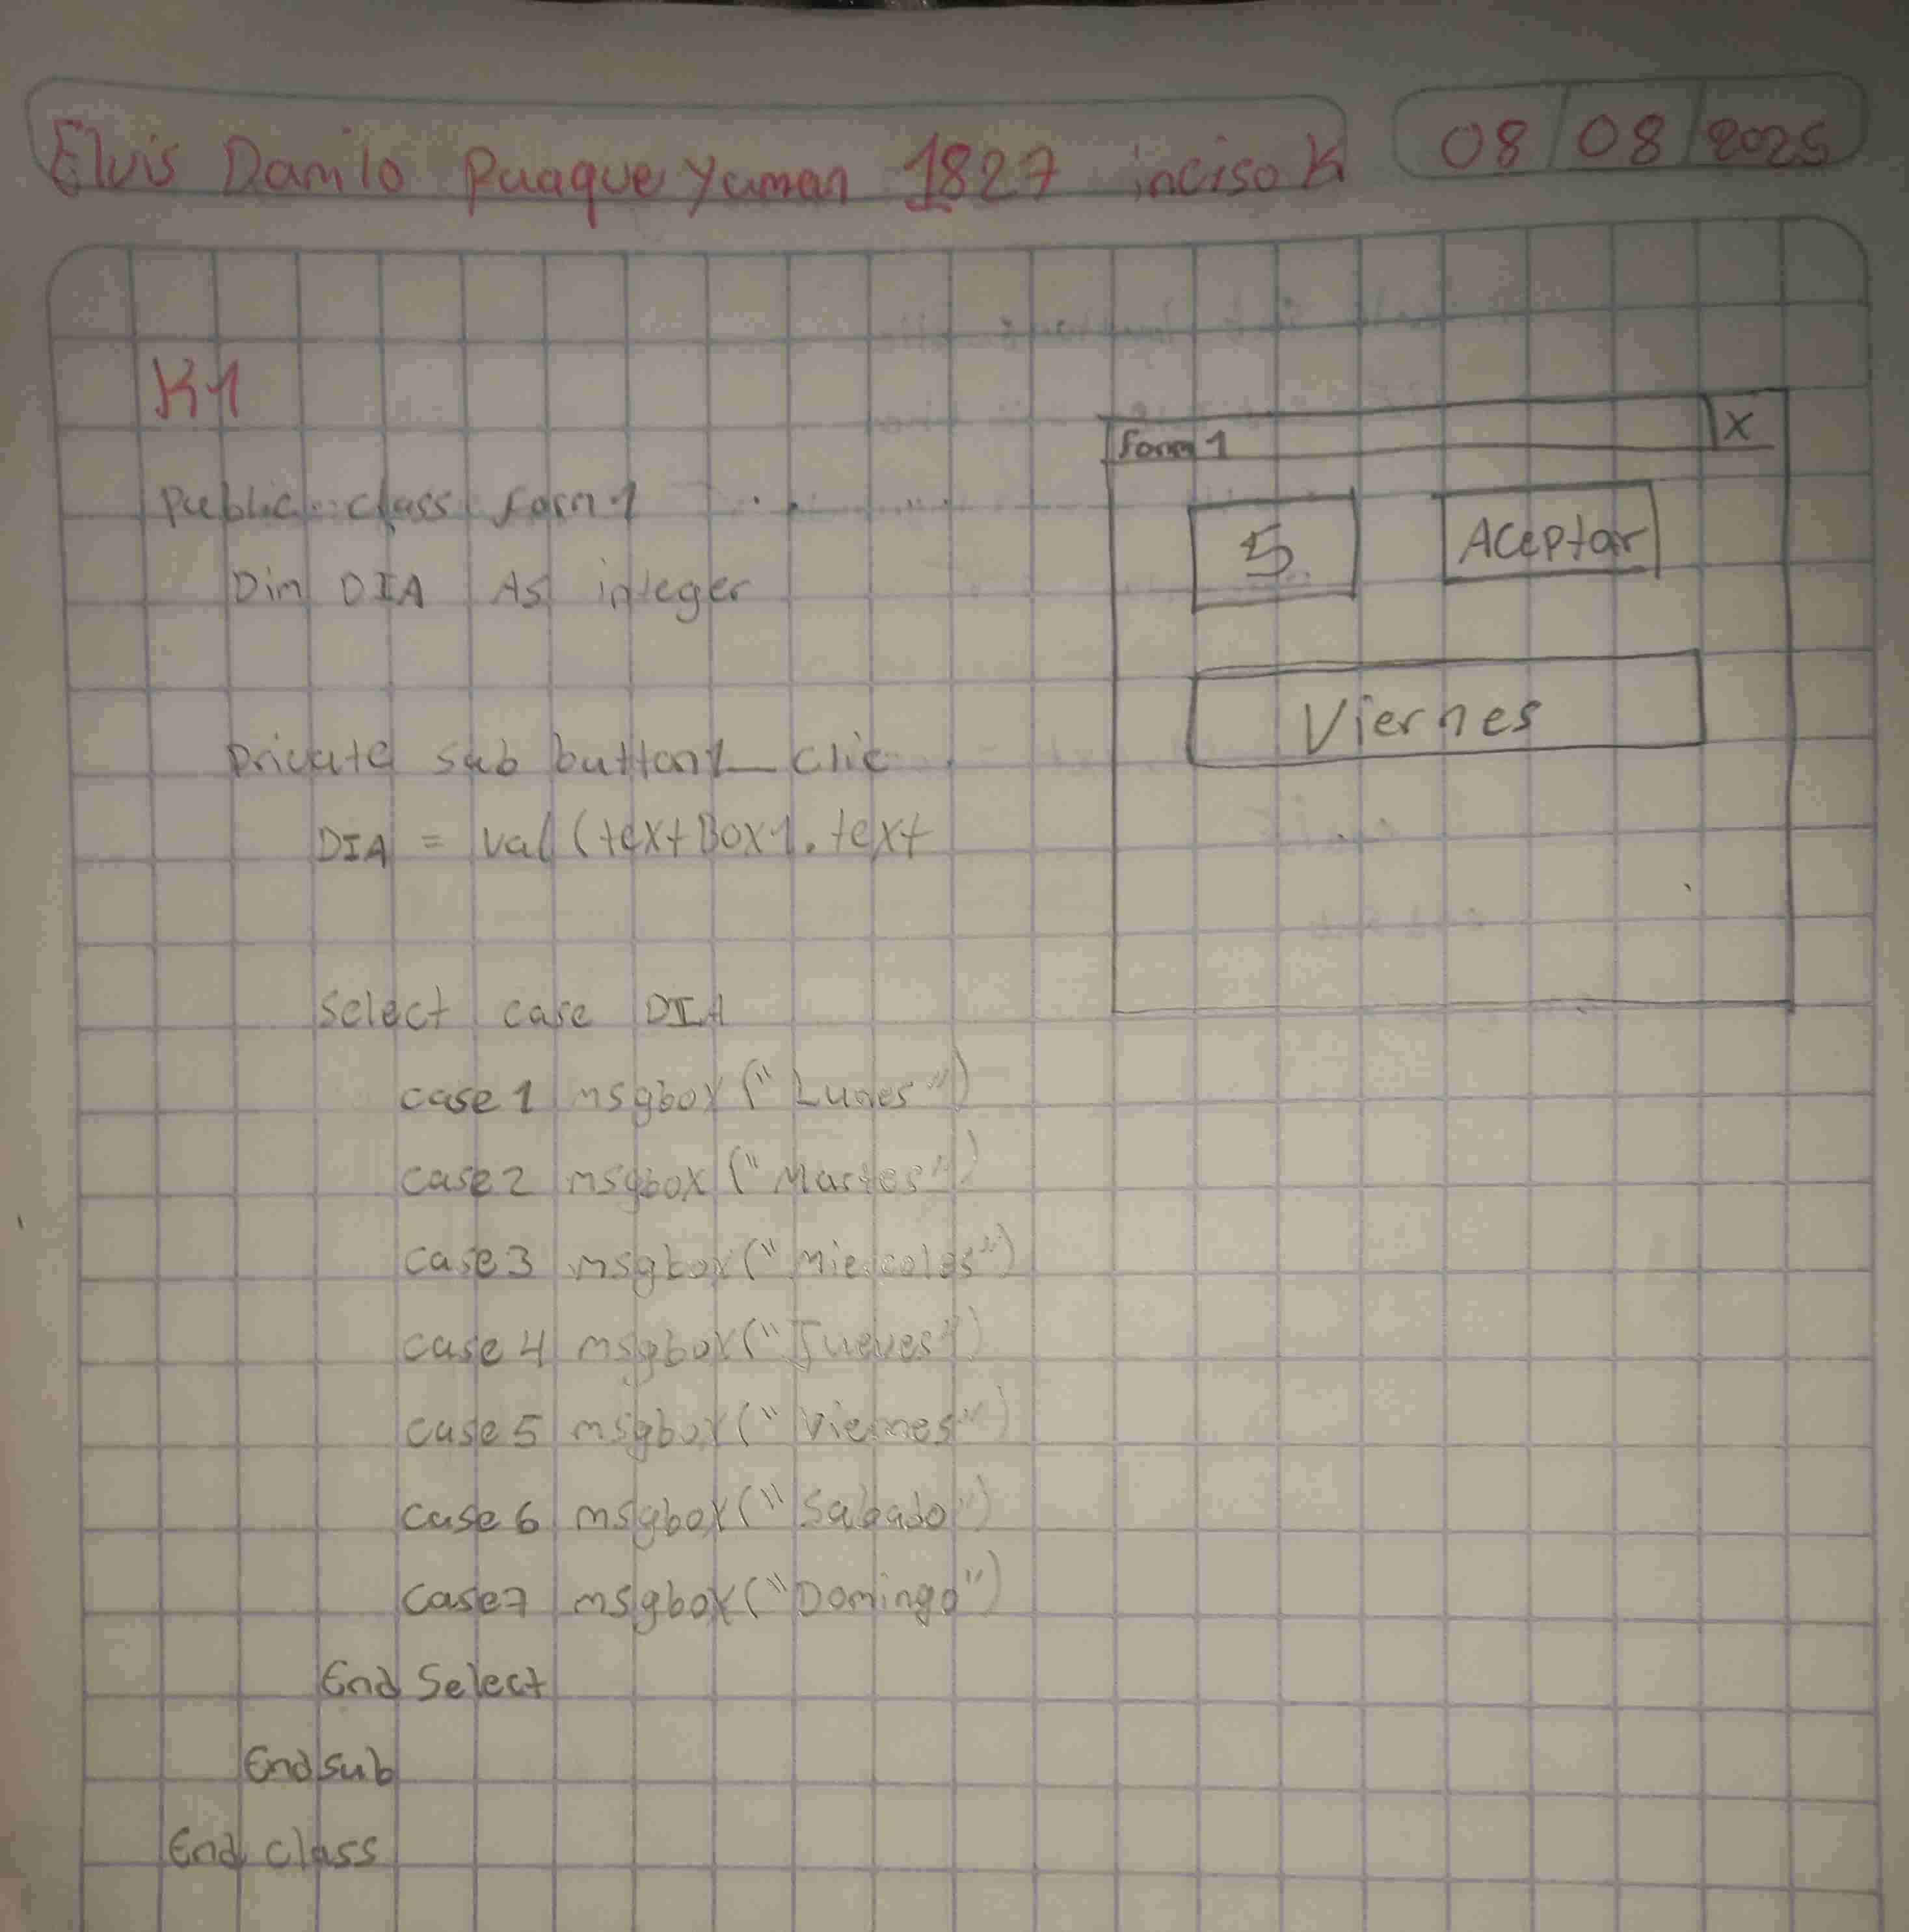 Elvis Danilo Puaque Yuman 1827 inciso K
08/08/2025
K1
Public class Form 1
Dim DIA As integer
private sub button1_clic
DIA = val (textBox1.text
Select case DIA
case 1 msgbox ("Lunes")
case 2 msgbox ("Martes")
case 3 msgbox ("Miercoles")
case 4 msgbox ("Jueves")
case 5 msgbox ("Viernes")
case 6 msgbox ("Sabado")
case 7 msgbox ("Domingo")
End Select
End sub
End class
Form 1 X
5 Aceptar
Viernes